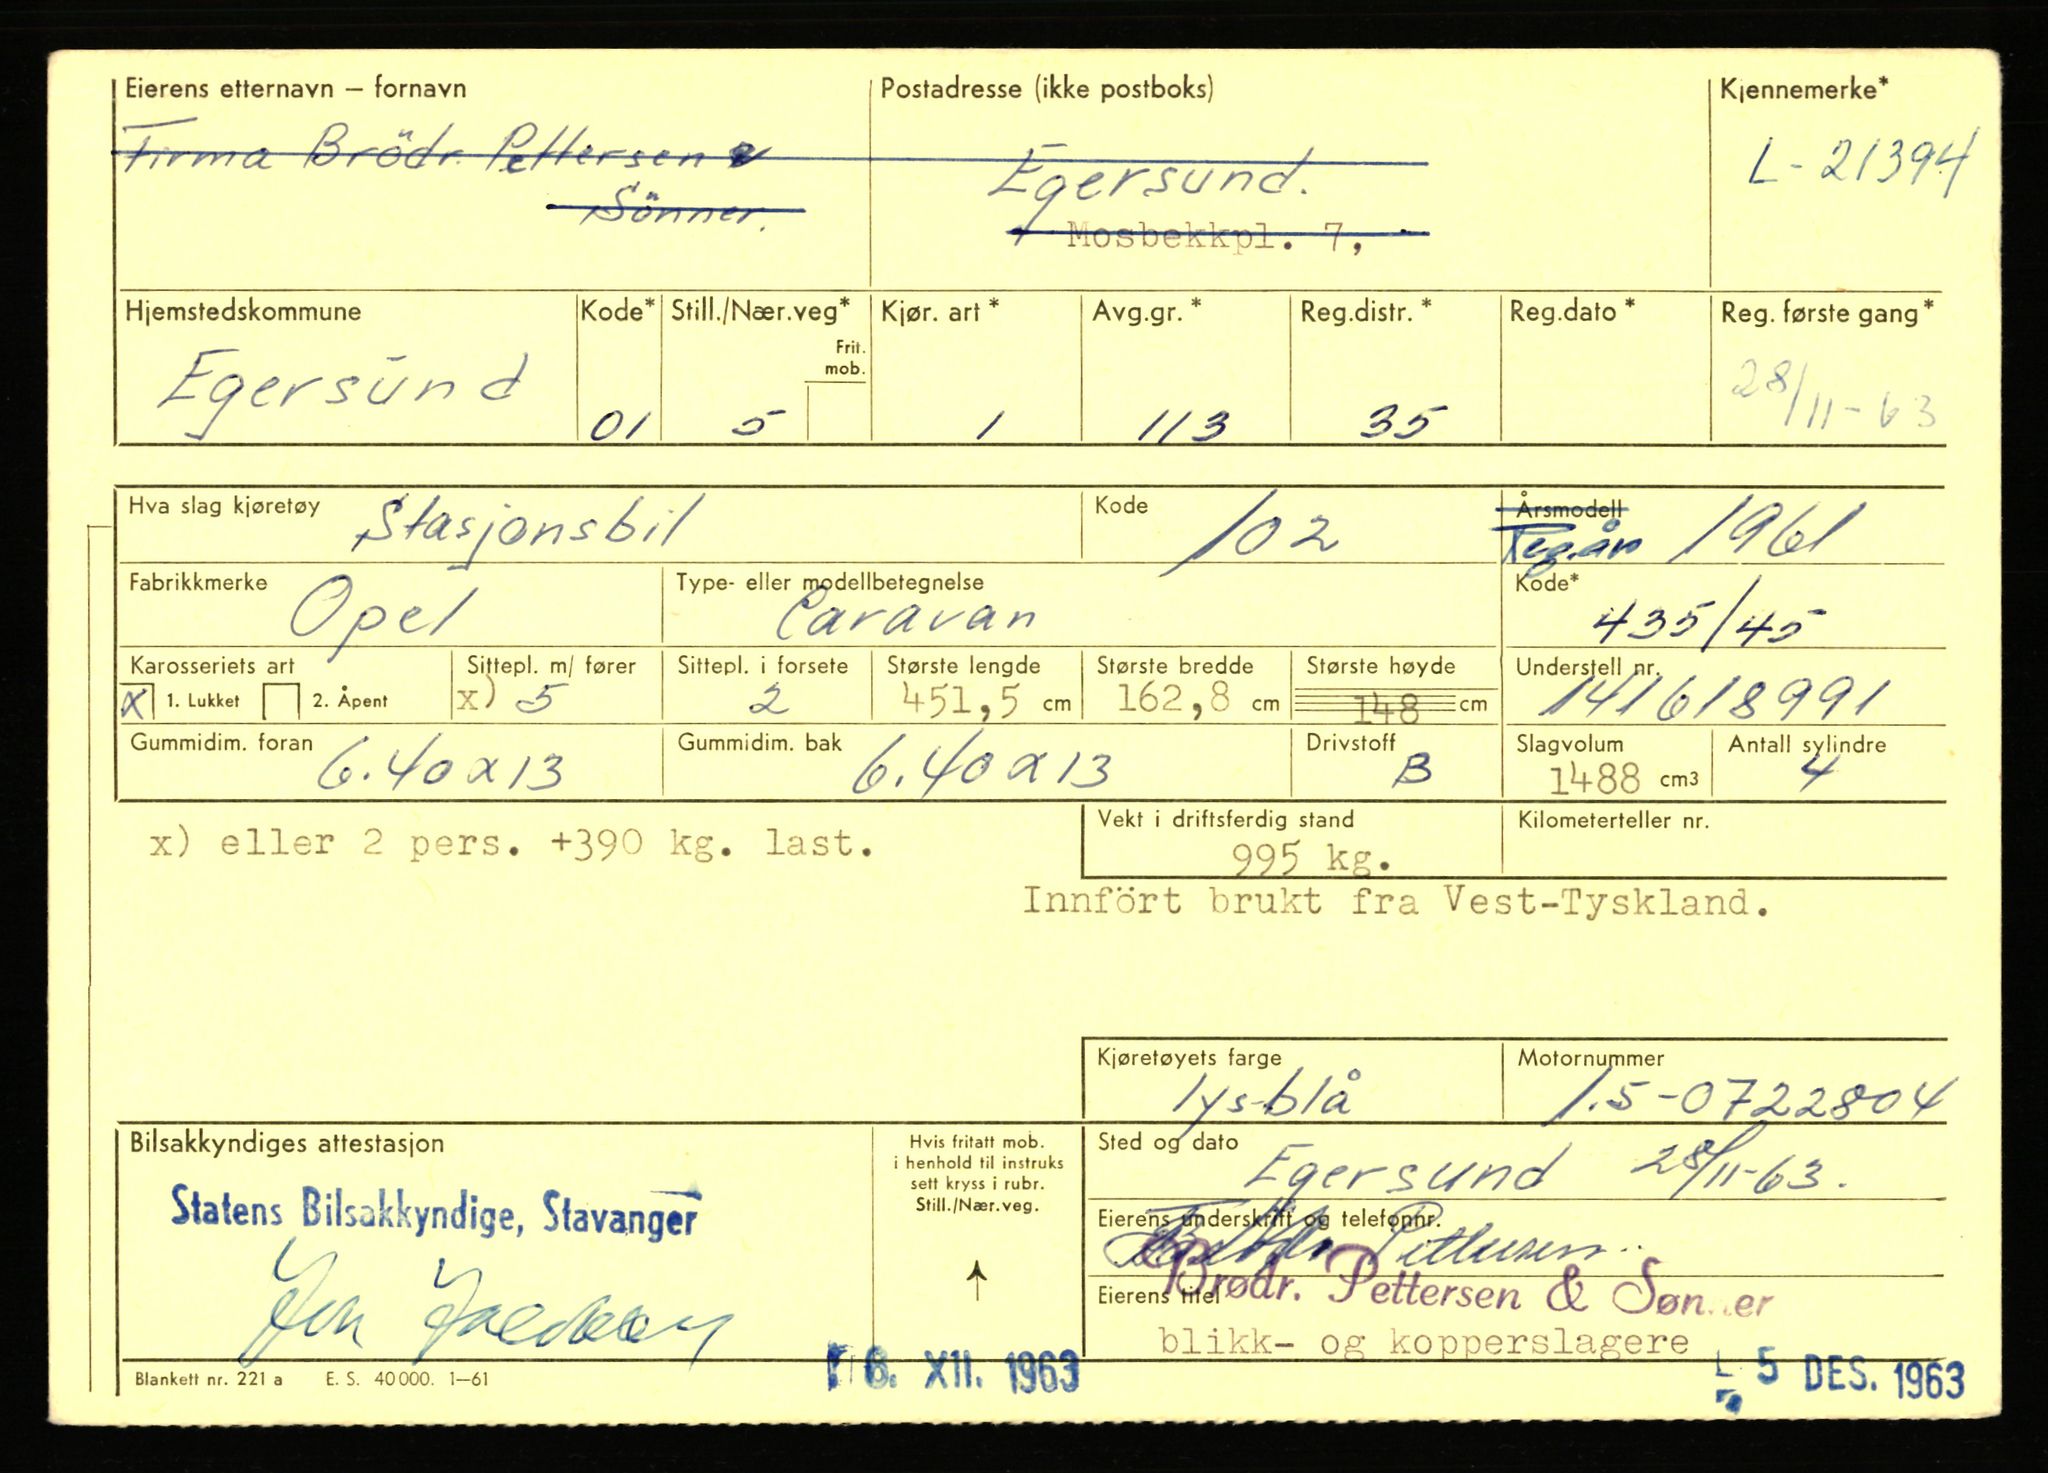 Eierens etternavn – fornavn Postadresse (ikke postboks) Kjennemerke*
Firma Brödr. Pettersen & Egersund. L-21394
Sönner. Mosbekkpl. 7,
Hjemstedskommune Kode* Still./Nær.veg* Kjør. art* Avg.gr.* Reg.distr.* Reg.dato* Reg. første gang*
Frit. mob.
Egersund 01 5 1 113 35 28/11-63
Hva slag kjøretøy Stasjonsbil Kode 102 Årsmodell Reg.år 1961
Fabrikkmerke Opel Type- eller modellbetegnelse Caravan Kode* 435/45
Karosseriets art Sittepl. m/ fører Sittepl. i forsete Største lengde Største bredde Største høyde Understell nr.
X 1. Lukket 2. Åpent x) 5 2 451,5 cm 162,8 cm 148 cm 141618991
Gummidim. foran Gummidim. bak Drivstoff Slagvolum Antall sylindre
6.40x13 6.40x13 B 1488 cm3 4
x) eller 2 pers. +390 kg. last. Vekt i driftsferdig stand Kilometerteller nr.
995 kg.
Innfört brukt fra Vest-Tyskland.
Kjøretøyets farge Motornummer
lys-blå 1.5-0722804
Bilsakkyndiges attestasjon Hvis fritatt mob. i henhold til instruks sett kryss i rubr. Still./Nær.veg. Sted og dato
Egersund 28/11-63.
Statens Bilsakkyndige, Stavanger Eierens underskrift og telefonnr.
Pettersen
Eierens titel Brødr. Pettersen & Sønner
blikk- og kopperslagere
Blankett nr. 221 a E. S. 40 000. 1–61 6. XII. 1963 5 DES. 1963